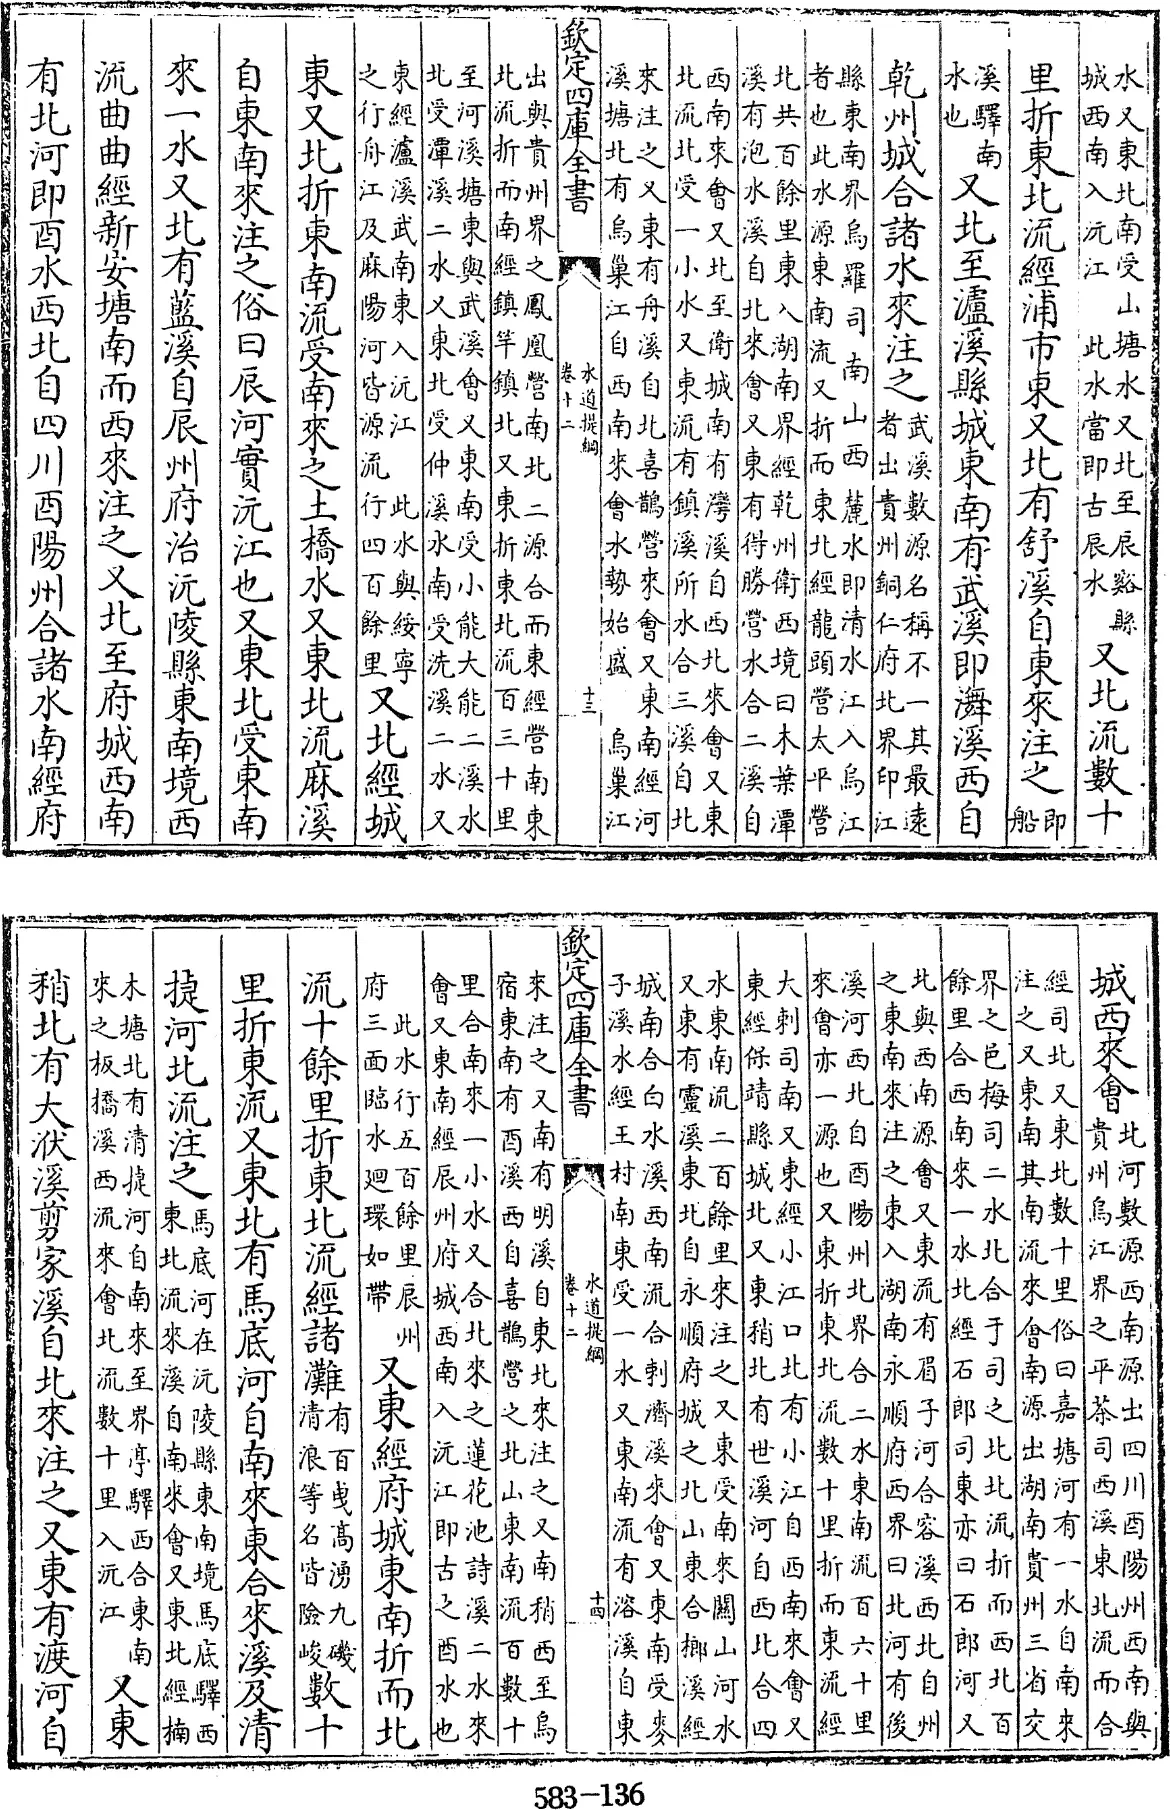 水又東北南受山塘水又北至辰谿縣
城西南入沅江　此水當即古辰水
又北流數十
里折東北流經浦市東又北有舒溪自東來注之
即
船
溪驛南
水也
又北至瀘溪縣城東南有武溪即㵲溪西自
乾州城合諸水來注之
武溪數源名稱不一其最遠
者出貴州銅仁府北界印江
縣東南界烏羅司南山西麓水即清水江入烏江
者也此水源東南流又折而東北經龍頭營太平營
北共百餘里東入湖南界經乾州衛西境曰木葉潭
溪有泡水溪自北來會又東有得勝營水合二溪自
西南來會又北至衛城南有灣溪自西北來會又東
北流北受一小水又東流有鎮溪所水合三溪自北
來注之又東有舟溪自北喜鵲營來會又東南經河
溪塘北有烏巢江自西南來會水勢始盛　烏巢江
欽定四庫全書
水道提綱
卷十二
十三
出與貴州界之鳳凰營南北二源合而東經營南東
北流折而南經鎮竿鎮北又東折東北流百三十里
至河溪塘東與武溪會又東南受小能大能二溪水
北受潭溪二水又東北受仲溪水南受洗溪二水又
東經瀘溪武南東入沅江　此水與綏寧
之行舟江及麻陽河皆源流行四百餘里
又北經城
東又北折東南流受南來之土橋水又東北流麻溪
自東南來注之俗曰辰河實沅江也又東北受東南
來一水又北有藍溪自辰州府治沅陵縣東南境西
流曲曲經新安塘南而西來注之又北至府城西南
有北河即酉水西北自四川酉陽州合諸水南經府
城西來會
北河數源西南源出四川酉陽州西南與
貴州烏江界之平茶司西溪東北流而合
經司北又東北數十里俗曰嘉塘河有一水自南來
注之又東南其南流來會南源出湖南貴州三省交
界之邑梅司二水北合于司之北北流折而西北百
餘里合西南來一水北經石郎司東亦曰石郎河又
北與西南源會又東流有眉子河合容溪西北自州
之東南來注之東入湖南永順府西界曰北河有後
溪河西北自酉陽州北界合二水東南流百六十里
來會亦一源也又東折東北流數十里折而東流經
大剌司南又東經小江口北有小江自西南來會又
東經保靖縣城北又東稍北有世溪河自西北合四
水東南流二百餘里來注之又東受南來關山河水
又東有靈溪東北自永順府城之北山東合鄉溪經
城南合白水溪西南流合剌濟溪來會又東南受麥
子溪水經王村南東受一水又東南流有溶溪自東
欽定四庫全書
水道提綱
卷十二
十四
來注之又南有明溪自東北來注之又南稍西至烏
宿東南有酉溪西自喜鵲營之北山東南流百數十
里合南來一小水又合北來之蓮花池詩溪二水來
會又東南經辰州府城西南入沅江即古之酉水也
此水行五百餘里辰州
府三面臨水迴環如帶
又東經府城東南折而北
流十餘里折東北流經諸灘
有百曳高湧九磯
清浪等名皆險峻
數十
里折東流又東北有馬底河自南來東合來溪及清
㨗河北流注之
馬底河在沅陵縣東南境馬底驛西
東北流來溪自南來會又東北經楠
木塘北有清㨗河自南來至界亭驛西合東南
來之板橋溪西流來會北流數十里入沅江
又東
稍北有大洑溪剪家溪自北來注之又東有渡河自
583-136